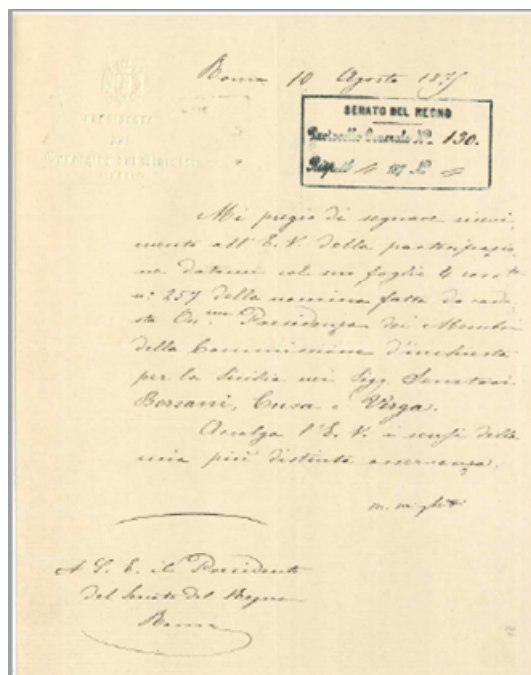 Roma 10 Agosto 1875
PRESIDENZA
DEL
CONSIGLIO DEI MINISTRI
SENATO DEL REGNO
Protocollo Generale N.º 130.
187 N.º
Mi pregio di segnare ricevi-
mento all'E. V. della partecipazio-
ne datami col suo foglio 4 corrte
nº 257 della nomina fatta da code-
sta On.ma Presidenza dei Membri
della Commissione d'inchiesta
per la Sicilia nei Sigg. Senatori
Borsani, Cusa e Verga.
E. V. i sensi della
mia più distinta osservanza.
M. Minghetti
A S. E. il Presidente
del Senato del Regno
Roma